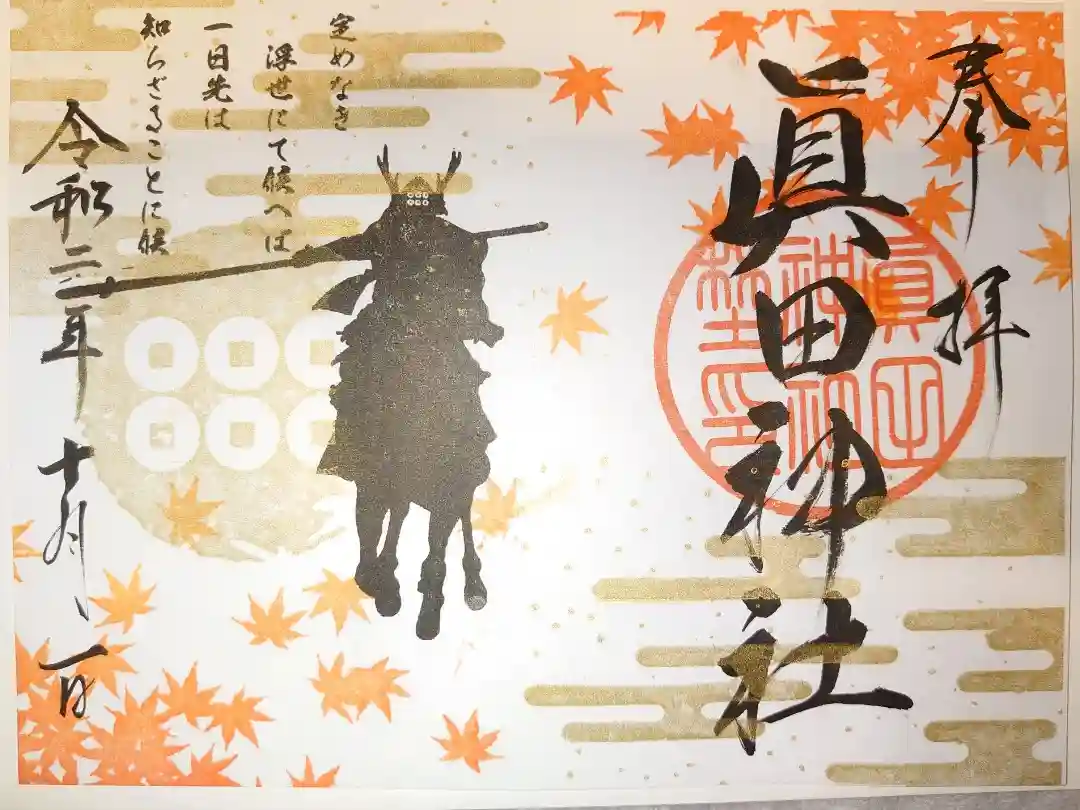 奉拝
眞田神社
定めなき
浮世にて候へば
一日先は
知らざることに候
令和二年十月一日